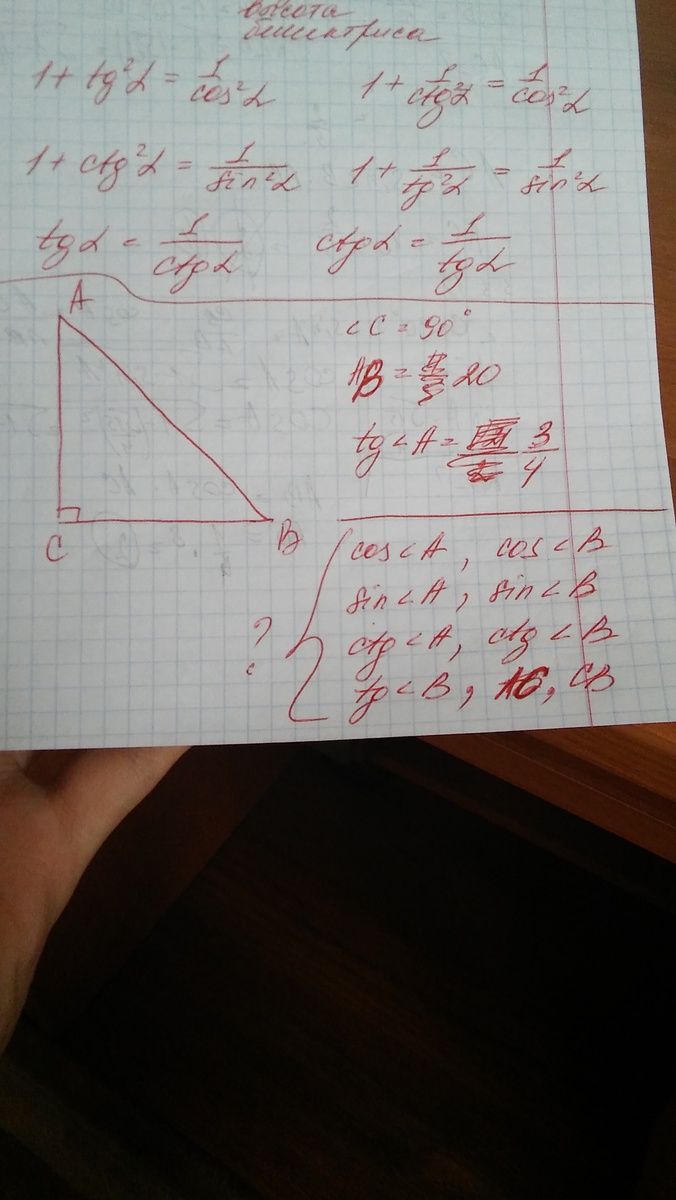 высота
биссектриса
1 + tg²α = 1/cos²α 1 + 1/ctg²α = 1/cos²α
1 + ctg²α = 1/sin²α 1 + 1/tg²α = 1/sin²α
tgα = 1/ctgα ctgα = 1/tgα
A
∠C = 90°
AB = 20
tg∠A = 3/4
C B
cos∠A, cos∠B
sin∠A, sin∠B
? ctg∠A, ctg∠B
tg∠B, AC, CB